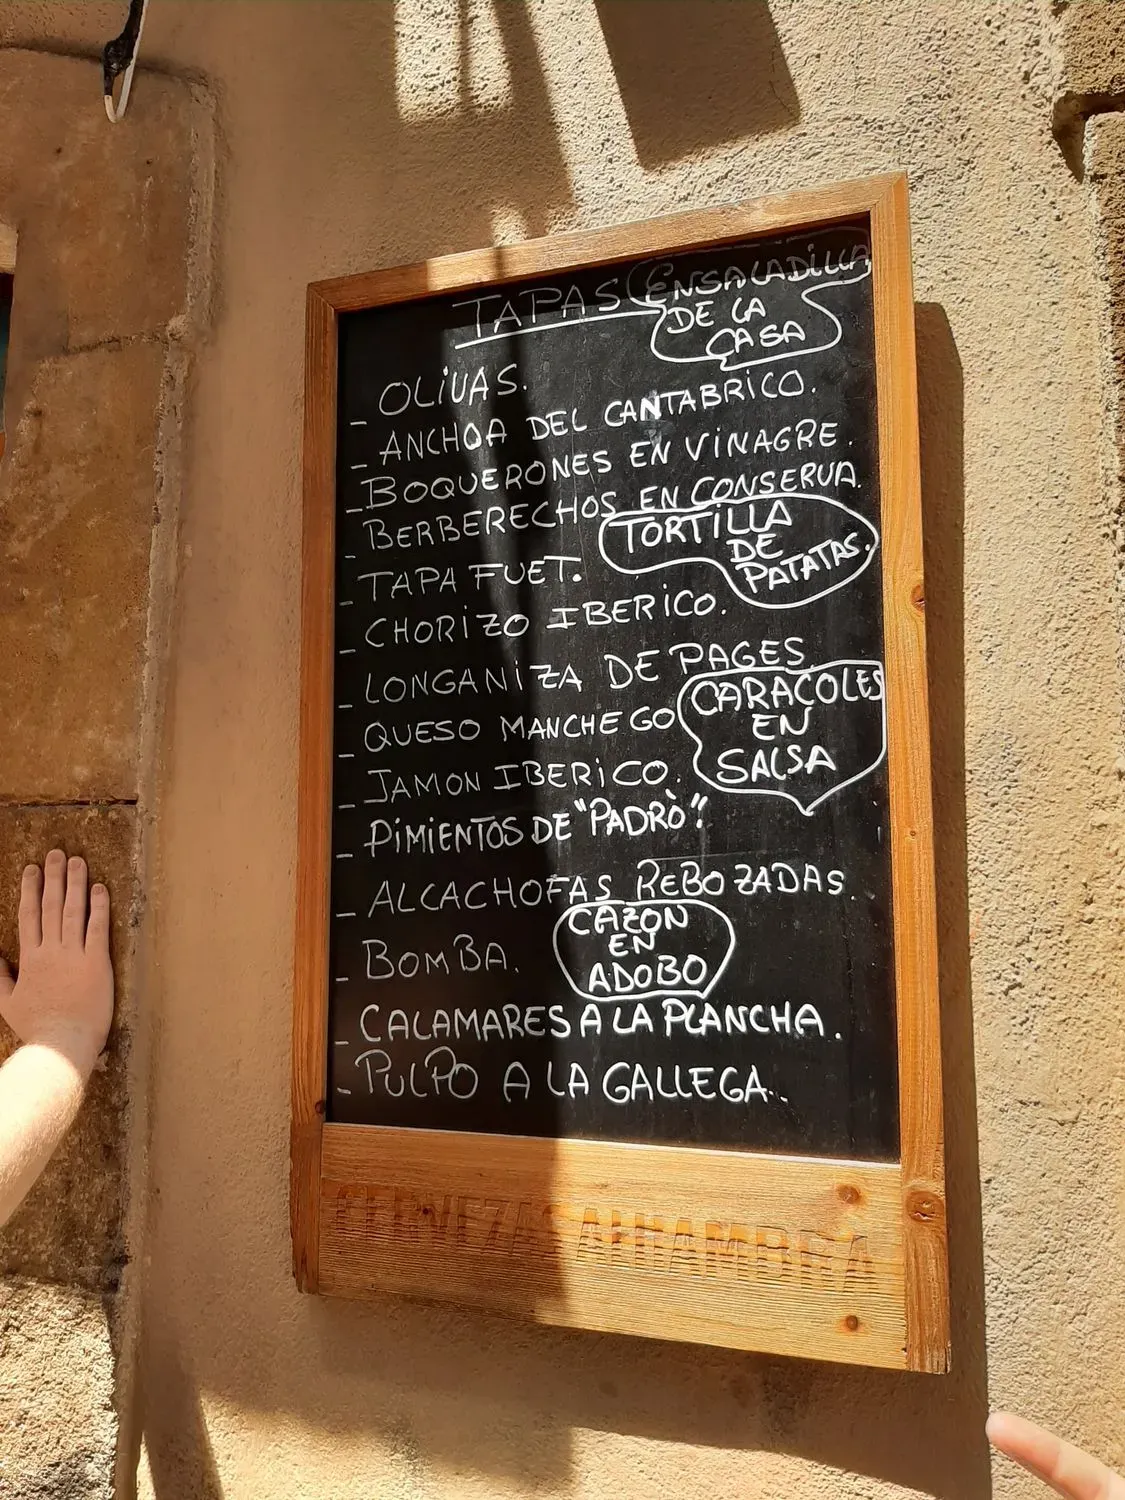 TAPAS
ENSALADILLA
DE LA
CASA
- OLIVAS.
- ANCHOA DEL CANTABRICO.
- BOQUERONES EN VINAGRE.
- BERBERECHOS EN CONSERVA.
- TAPA FUET.
TORTILLA
DE
PATATAS.
- CHORIZO IBERICO.
- LONGANIZA DE PAGES.
- QUESO MANCHEGO
CARACOLES
EN
SALSA
- JAMON IBERICO.
- PIMIENTOS DE "PADRÒ".
- ALCACHOFAS REBOZADAS.
- BOMBA.
CAZON
EN
ADOBO
- CALAMARES A LA PLANCHA.
- PULPO A LA GALLEGA..
CERVEZAS ALHAMBRA